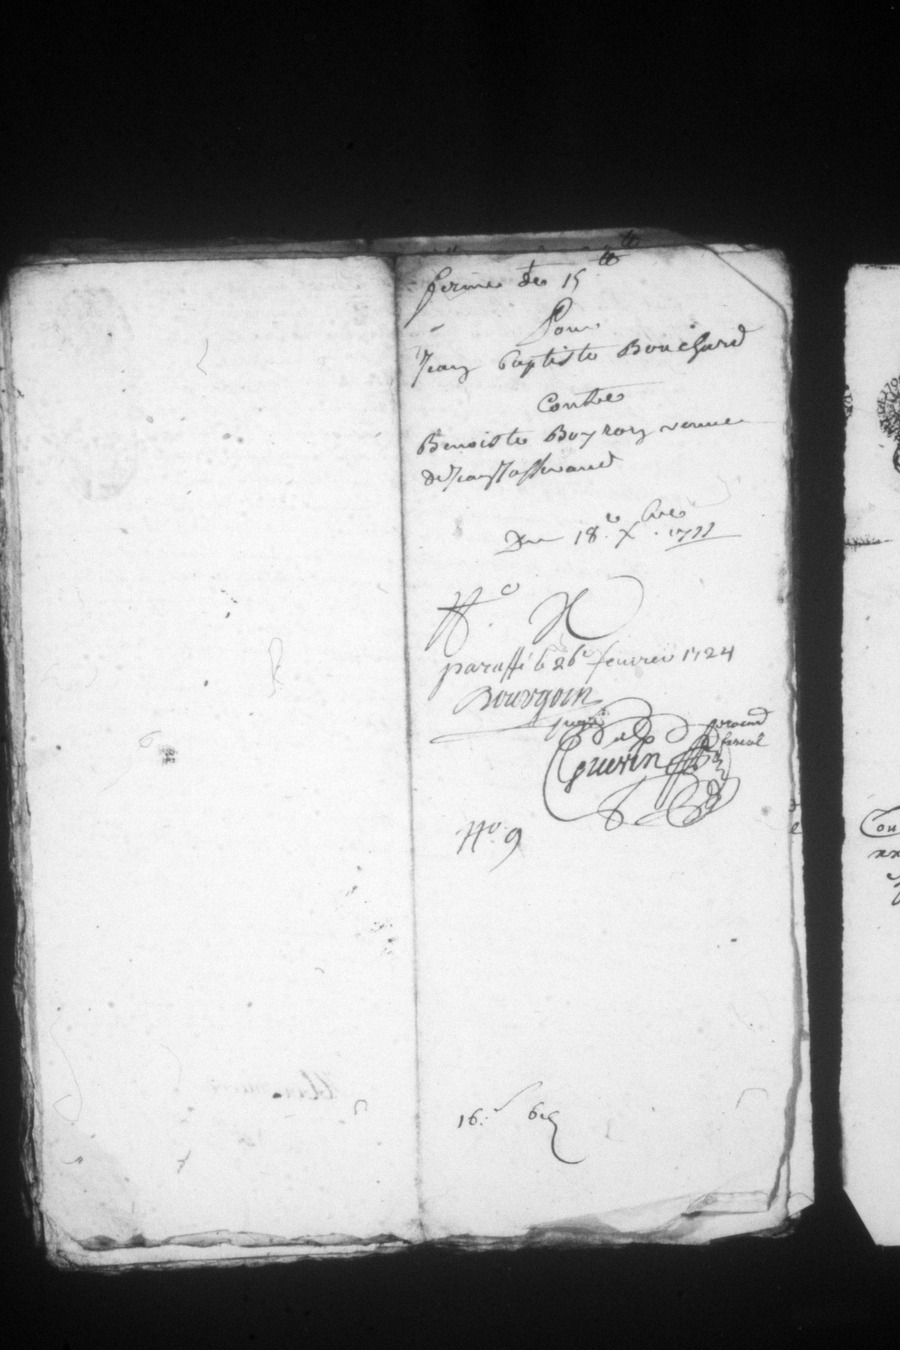 ferme de 15 ₶
Pour
Jean baptiste Bouchard
Contre
Benoiste Boyron veuve
de Jean
Du 18e xbre 1711
paraffé le 26e feuvrier 1724
Bourgoin
juge
Guerin
fiscal
No. 9
16 s 6 d